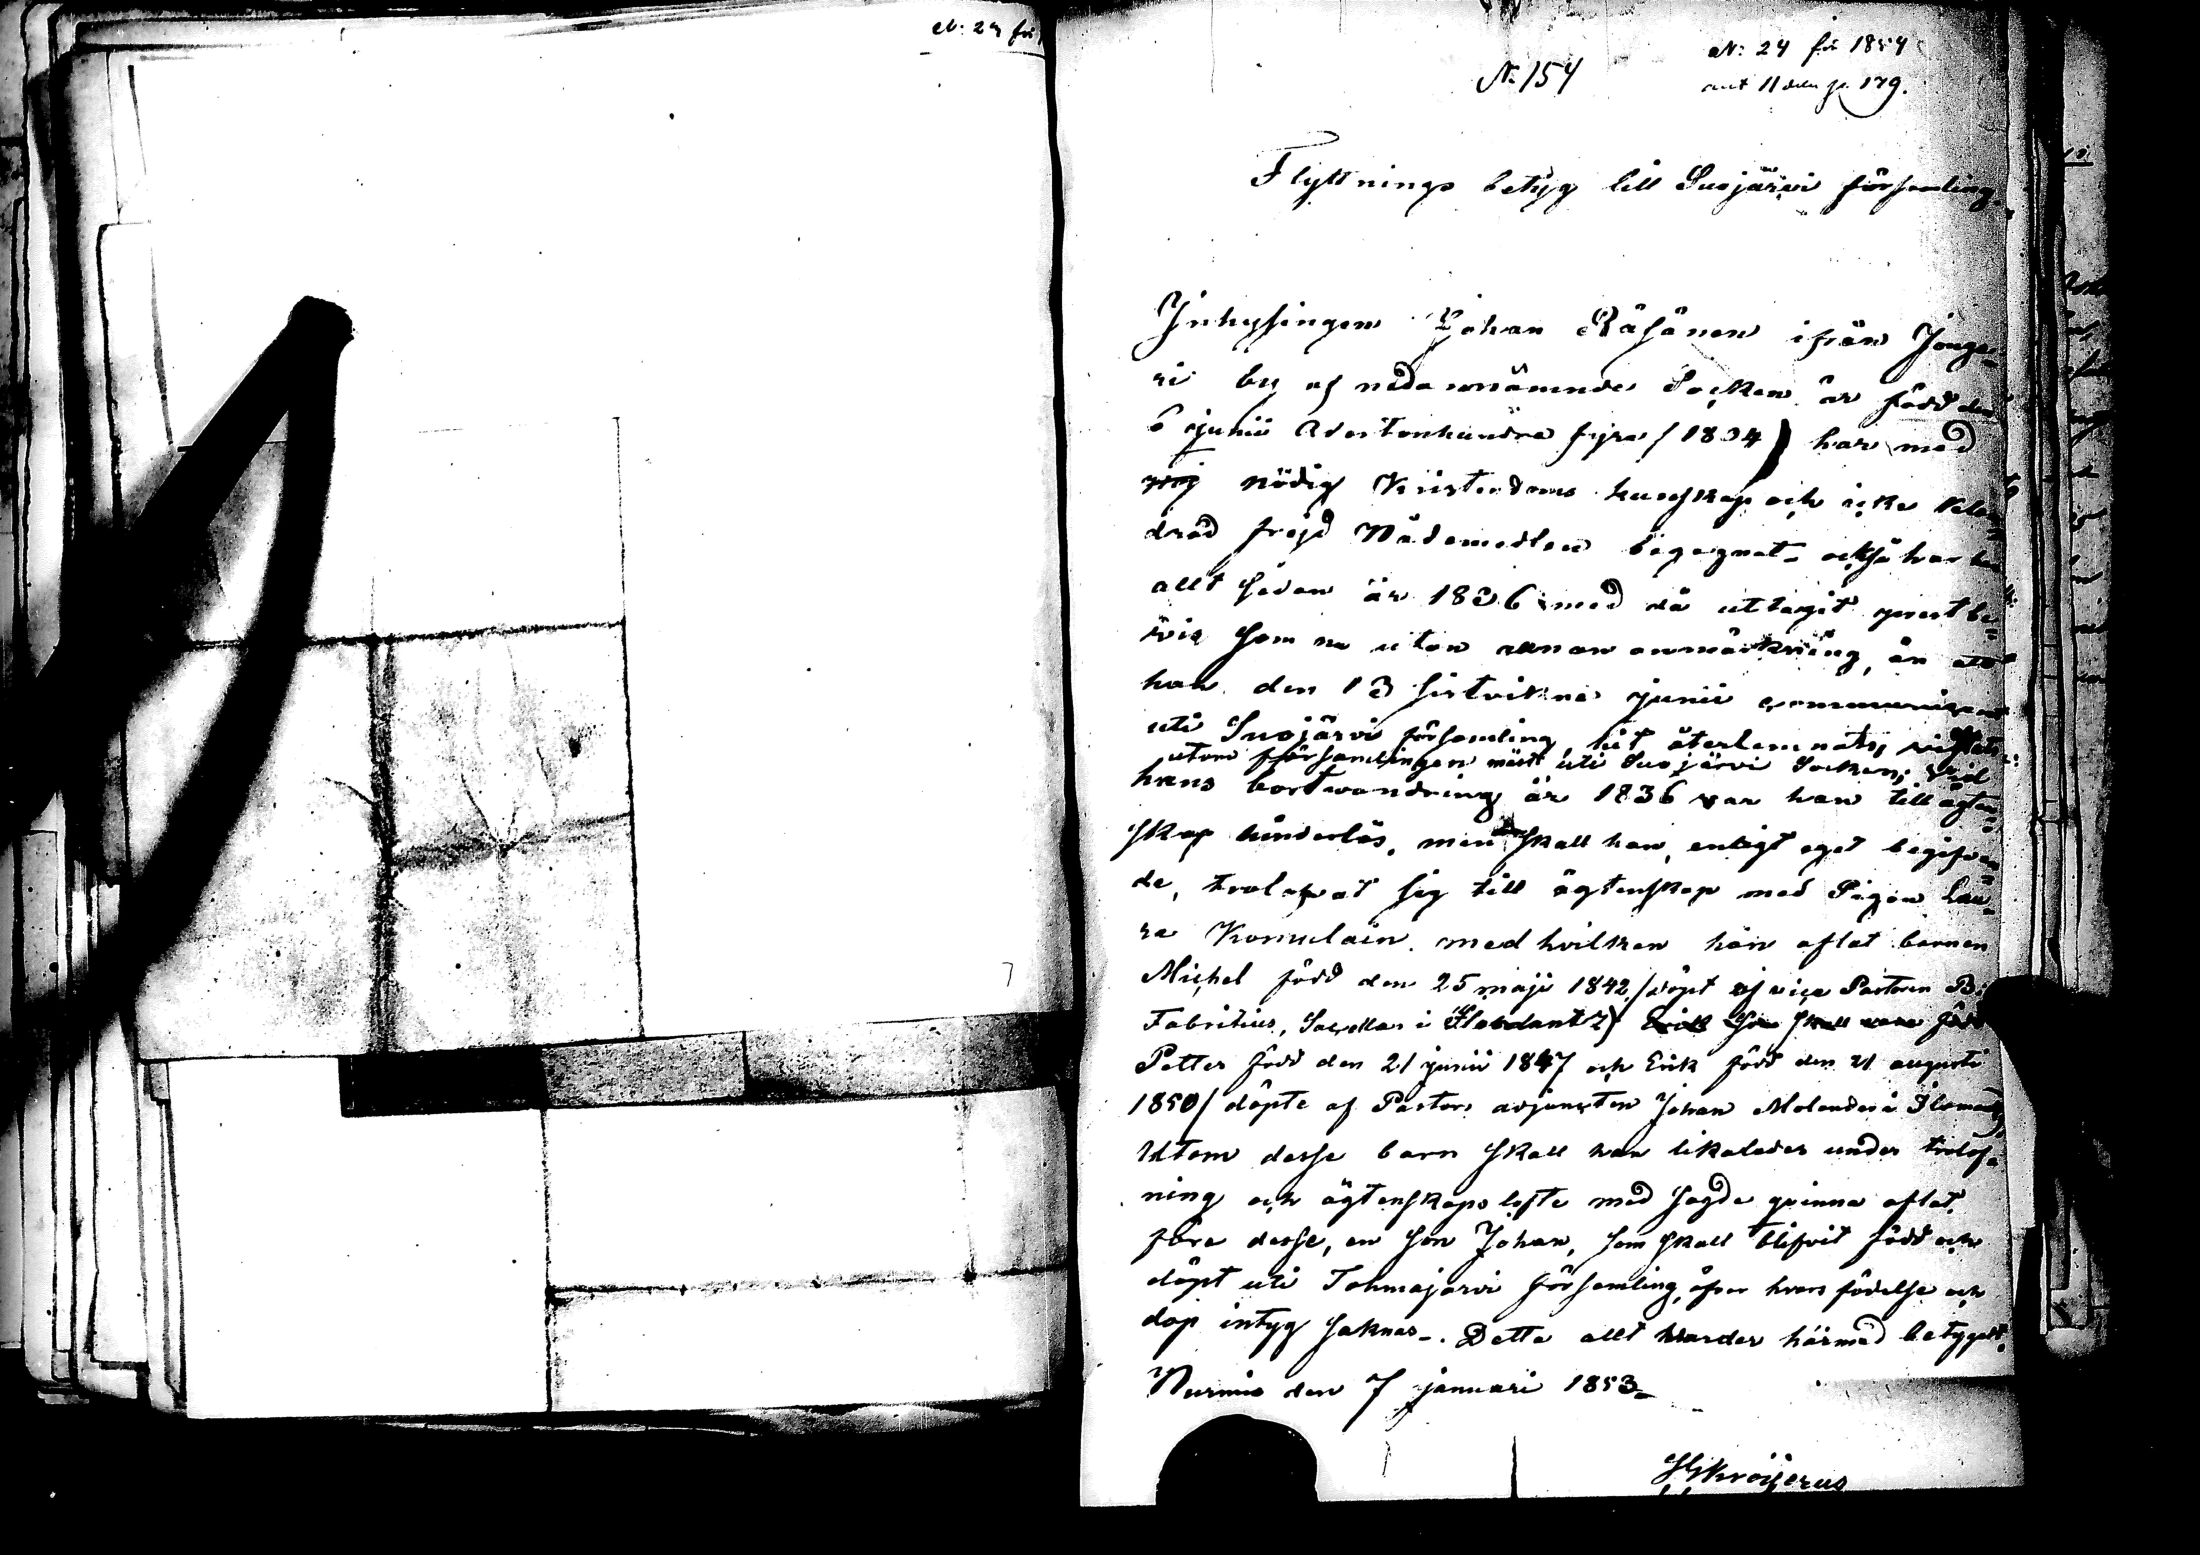 N: 24 för
N: 24 för 1854
N: 154
ant 11 den p. 179.
Flyttnings betyg till Suojärvi församling
Inhysingen Johan Räsänen ifrån Jonge-
ri by af nedannämnde Socken är född den
6 junii Adertonhundra fyra / 1804) har med
nödig Kristendoms kunskap och icke klan-
dräd frejd Nådemedlen begagnat - också har han
allt sedan år 1836 med då uttagit prestbe-
vis som nu utan annan anmärkning, än att
han den 13 sistvikne junii communicerat
uti Suojärvi församling, hit återlemnats, vistats
utom församlingen mäst uti Suojärvi Socken; Vid
hans bortvandring år 1836 var han till ägten-
skap hinderlös, men skall han, enligt eget begifvan-
de, trolofvat sig till ägtenskap med Pigan Lau-
ra Komulain. med hvilken han aflat barnen
Michel född den 25 maji 1842 /döpt af vice Pastoren
Fabritius, Sacellan i Ilomants) Erik Son skall vara född
Petter född den 21 junii 1847 och Erik född den 21 augusti
1850/ döpte af Pastors adjuncten Johan Molander i Ilomants
Utom desse barn skall han likaledes under trolof-
ning och ägtenskaps löfte med sagde qvinna aflat
före desse, en son Johan, som skall blifvit född och
döpt uti Tohmajärvi församling, öfver hvars födelse och
dop intyg saknas -. Detta allt warder härmed betygadt.
Nurmis den 7 januari 1853 -